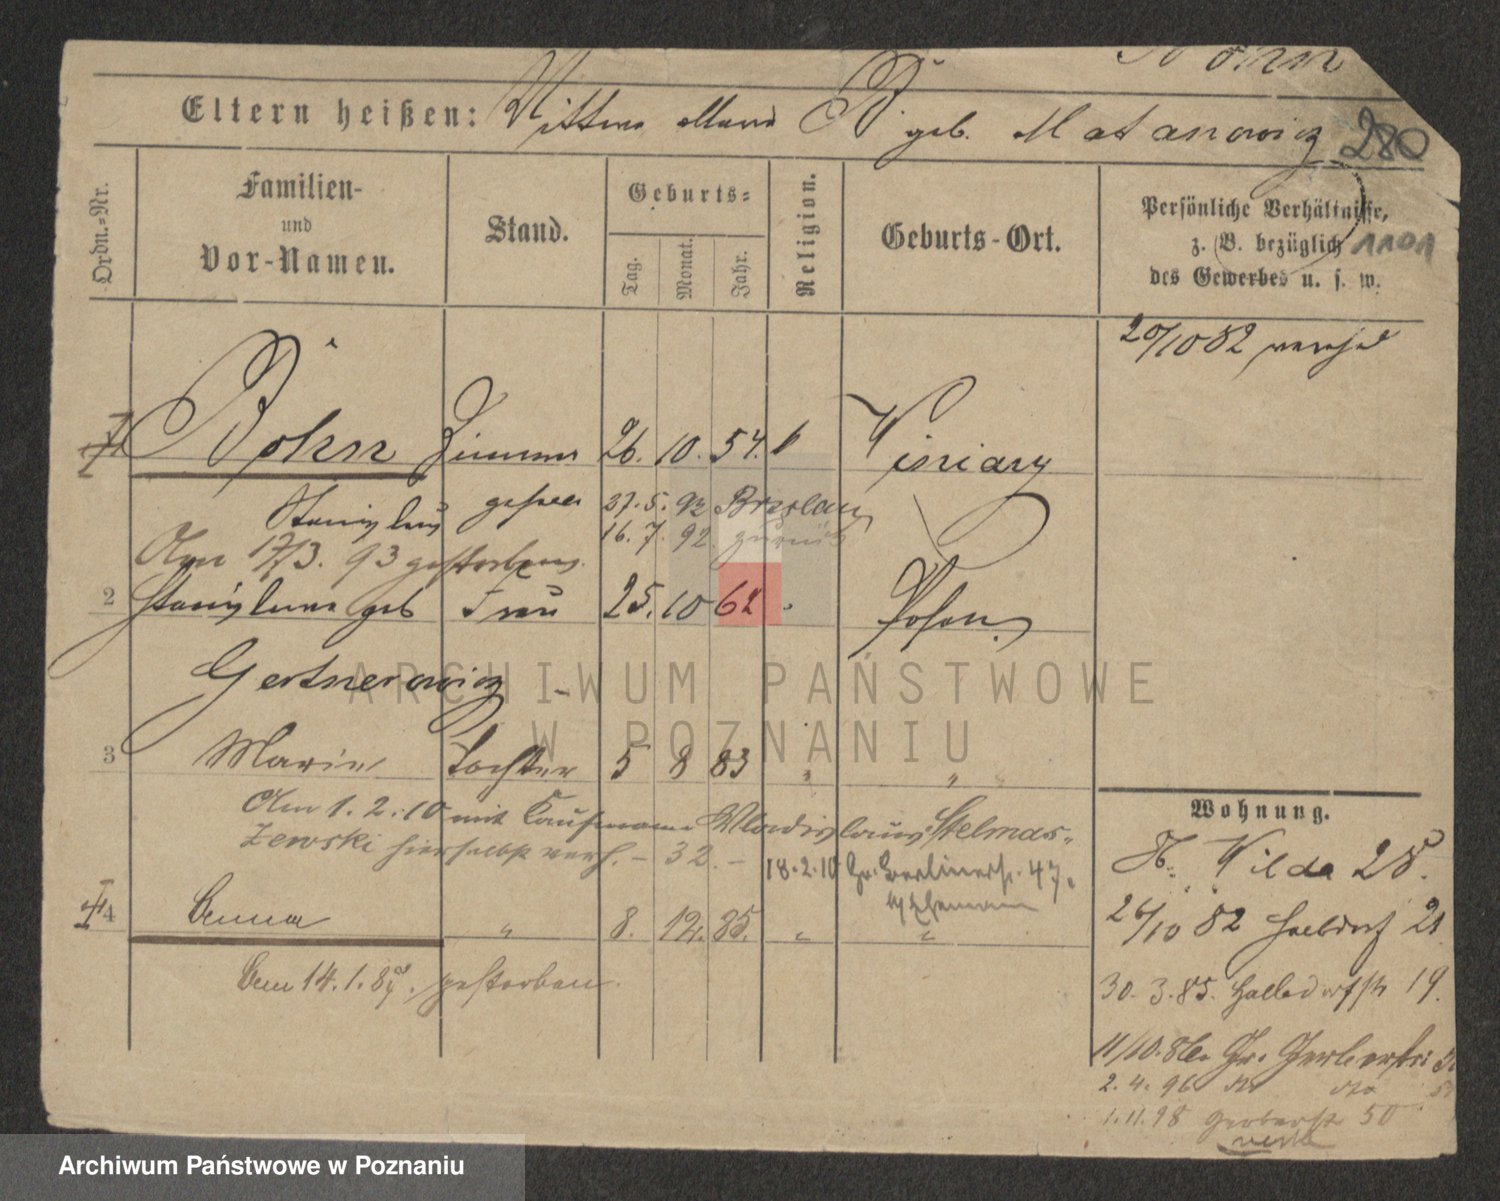 Böhn
Eltern heißen: Vittus Maria B. geb. Matanowicz 280
Ordn.-Nr.
Familien-
und
Vor-Namen.
Stand.
Geburts=
Tag.
Monat.
Jahr.
Religion.
Geburts-Ort.
Persönliche Verhältnisse,
z. B. bezüglich
des Gewerbes u. s. w.
1101
20/10 82
Böhn Zimmer 26. 10. 54.
Stanislaus gesell 27. 5. 92 Breslau
16. 7. 92 zurück
Am 17/3. 93 gestorben.
2 Stanislawa geb Frau 25. 10 62 Posen
Gertnerowicz
3 Marie Tochter 5 8 83 " "
Am 1. 2. 10 mit Kaufmann Wladislaus Stelmas-
zewski hierselbst verh. - 32. -
18.2.10 Gr. Berlinerstr. 47.
b/ Ehemann
4 Anna " 8. 12. 85. " "
Am 14. 1. 87. gestorben.
Wohnung.
Wilda 25.
26/10 82 Halbdorf 21
30. 3. 85. Halbdorfstr 19.
11/10. 86. Gr. Gerberstr.
2. 4. 96 dto dto
1. 11. 98 Gerberstr 50
ARCHIWUM PAŃSTWOWE
W POZNANIU
Archiwum Państwowe w Poznaniu